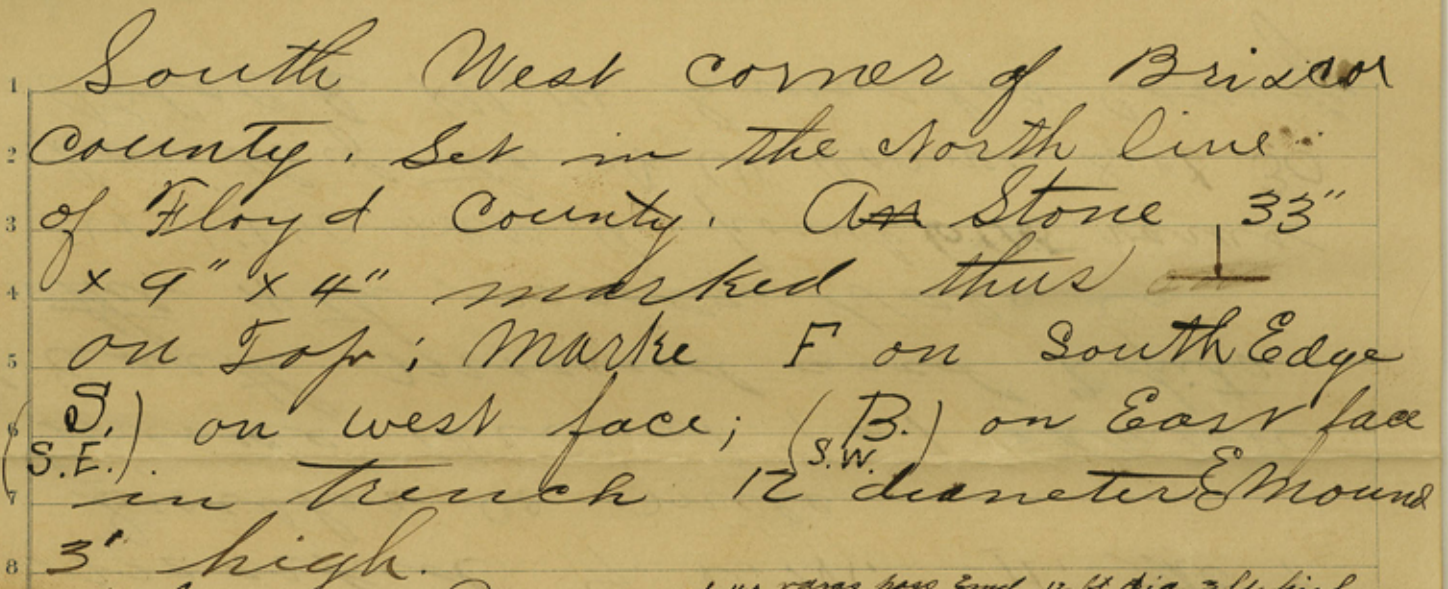 South West corner of Briscor
county. Set in the North line
of Floyd County. An Stone 33"
x 9" x 4" marked thus
on Top; Marke F on South Edge
(S.
S.E.) on west face; (B.
S.W.) on East face
in trench 12 diameter & Mound
3' high.
varas pass End 12 ft dia 3 ft high